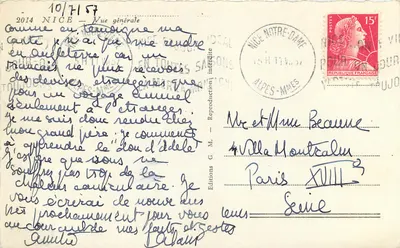 10/7/57
2014 - NICE - Vue générale
Comme en témoigne ma
carte, je n'ai pu me rendre
en Angleterre car
français ne peux recevoir
des devises étrangères que
pour un voyage annuel
seulement à l'étranger.
Je me suis donc rendue chez
mon grand père. Je commence
à apprendre le
J'espère que vous ne
souffrez pas trop de la
chaleur caniculaire. Je
vous écrirai de nouveau
prochainement pour vous tenir
au courant de mes faits et gestes
Amitiés
Editions G. M. - Reproduction interdite
NICE NOTRE-DAME
ALPES-MMES
15F
Mr et Mme Beaune
4 Villa Montcalm
Paris XVIII
Seine